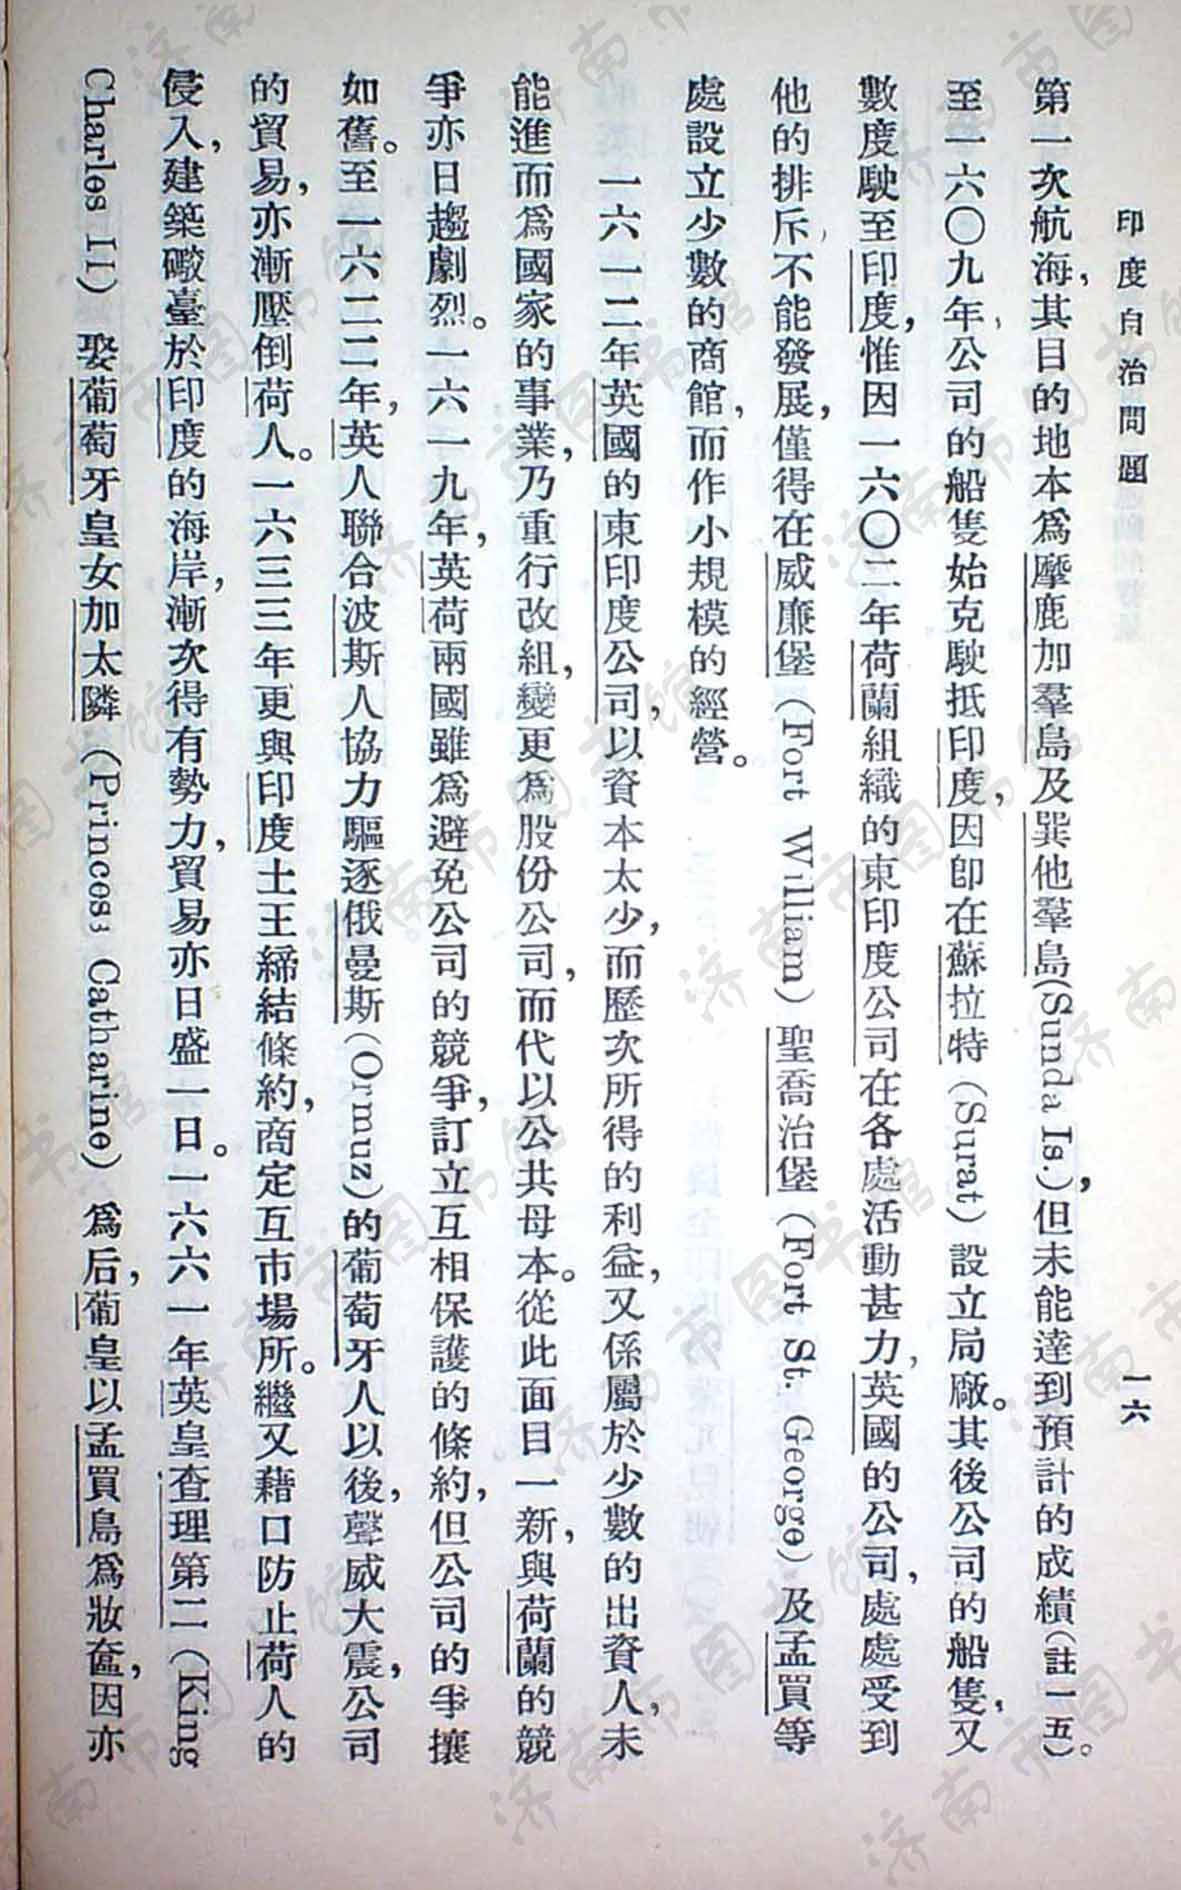 印度自治問題
一六
第一次航海，其目的地本爲摩鹿加羣島及巽他羣島(Sunda Is.)，但未能達到預計的成績(註一五)。
至一六〇九年，公司的船隻始克駛抵印度，因卽在蘇拉特（Surat）設立局廠。其後公司的船隻，又
數度駛至印度，惟因一六〇二年荷蘭組織的東印度公司在各處活動甚力，英國的公司，處處受到
他的排斥，不能發展，僅得在威廉堡（Fort William）聖喬治堡（Fort St. George）及孟買等
處設立少數的商館，而作小規模的經營。
一六一二年英國的東印度公司，以資本太少，而歷次所得的利益，又係屬於少數的出資人，未
能進而爲國家的事業，乃重行改組，變更爲股份公司，而代以公共母本。從此面目一新，與荷蘭的競
爭亦日趨劇烈。一六一九年，英荷兩國雖爲避免公司的競爭，訂立互相保護的條約，但公司的爭攘
如舊。至一六二二年，英人聯合波斯人協力驅逐俄曼斯(Ormuz)的葡萄牙人以後，聲威大震，公司
的貿易，亦漸壓倒荷人。一六三三年更與印度土王締結條約，商定互市場所。繼又藉口防止荷人的
侵入，建築礮臺於印度的海岸，漸次得有勢力，貿易亦日盛一日。一六六一年英皇查理第二（King
Charles II）娶葡萄牙皇女加太隣（Princess Catharine）爲后，葡皇以孟買島爲妝奩，因亦
济南市图书馆